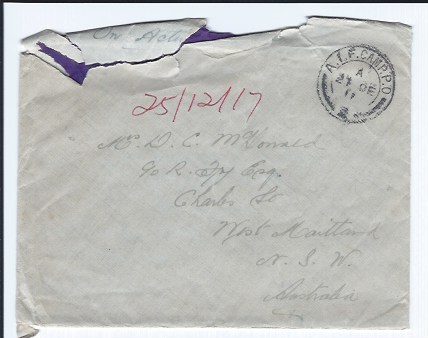 On Acti
A.I.F. CAMP P.O
A
27 DE
17
25/12/17
Mr. D. C. McDonald
c/o R. Fry Esq.
Charles St
West Maitland
N. S. W.
Australia